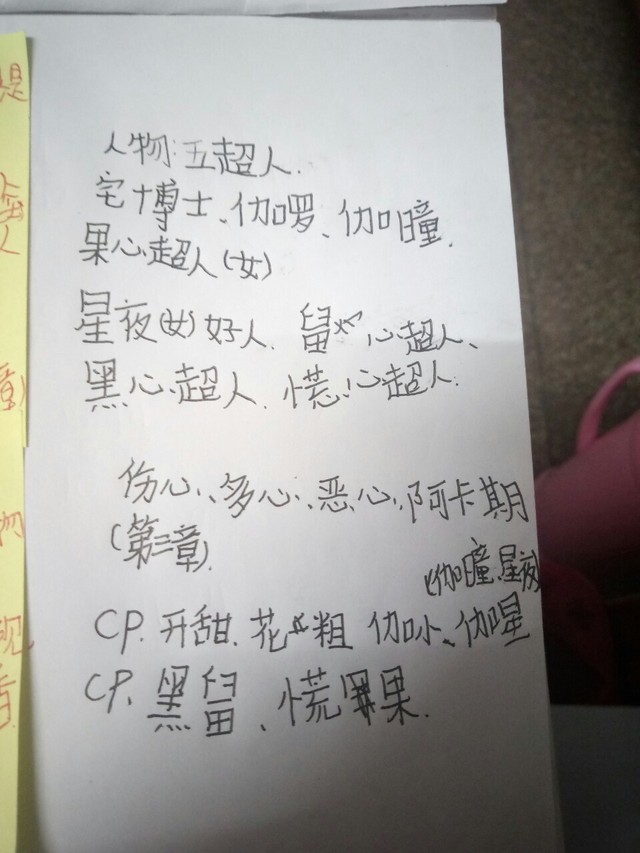 人物:五超人.
宅博士、伽啰、伽瞳.
果心超人(女)
星夜(女)好人. 留心超人、
黑心超人. 慌心超人.
伤心、多心、恶心、阿卡期
(第三章).
(伽瞳、星夜)
CP. 开甜. 花粗 伽小、伽星
CP. 黑留、慌果.
是
章)
物
观